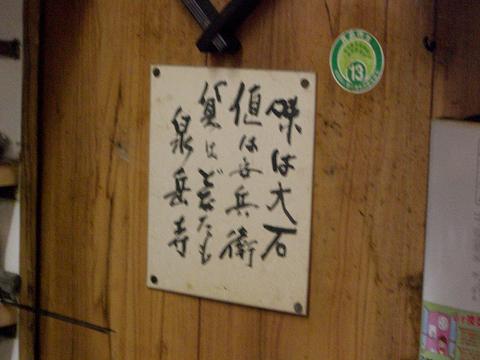 味は大石
値は安兵衛
貸はどなたも
泉岳寺
13